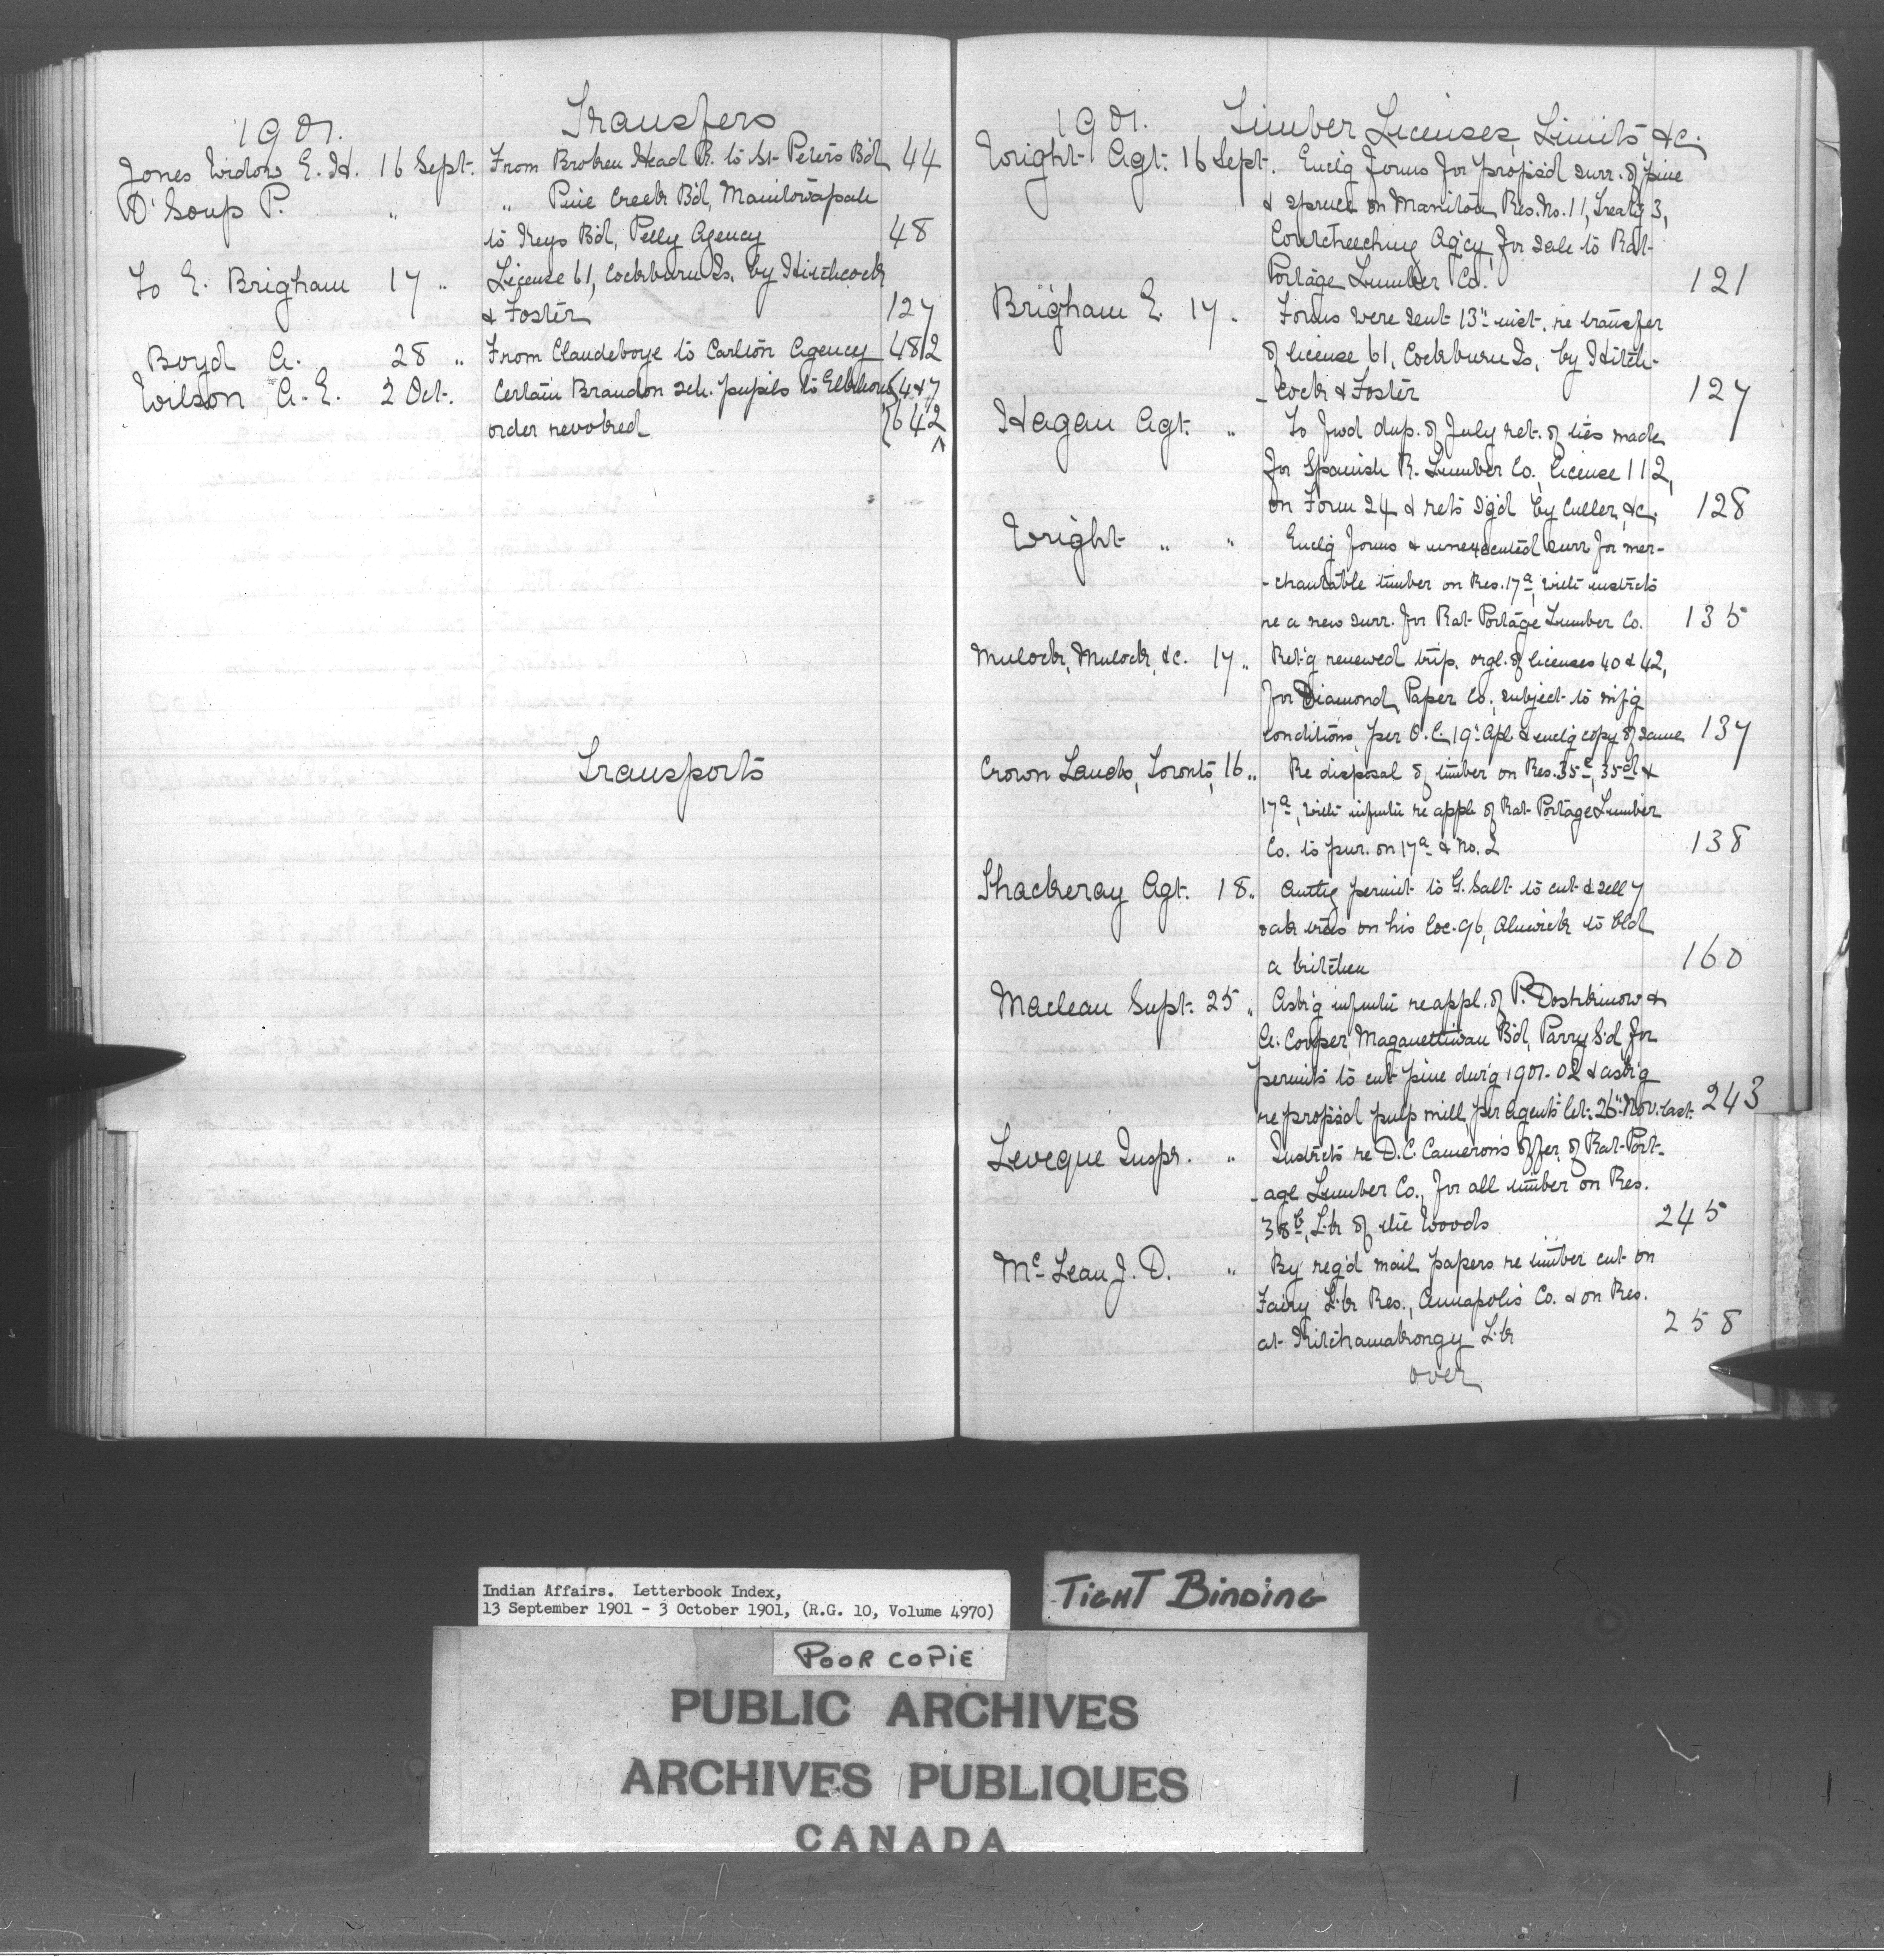 1901. Transfers
Jones Widow E. H. 16 Sept. From Broken Head R. to St Peters B'd 44
D'Soup P. " " Pine Creek B'd, Manitowapah
to Keys B'd, Pelly Agency 48
To E. Brigham 17 " License 61, Cockburn Is. by Hitchcock
& Foster 127
Boyd A. 28 " From Clandeboye to Carlton Agency 482
Wilson A. E. 2 Oct. Certain Brandon sch. pupils to Elkhorn 647
order revoked 642
Transports
1901. Timber Licenses, Limits &c.
Wright Agt. 16 Sept. Enclg forms for propos'd surr. of pine
& spruce on Manitou Res. No. 11, Treaty 3,
Coutcheeching Ag'cy, for sale to Rat
Portage Lumber Co. 121
Brigham E. 17 " Forms were sent 13" inst. re transfer
of license 61, Cockburn Is. by Hitch-
-cock & Foster 127
Hagan Agt. " To fwd dup. of July ret. of ties made
for Spanish R. Lumber Co., license 112,
on Form 24 & rets sg'd by Culler, &c. 128
Wright " " Enclg forms & unexecuted surr for mer-
-chantable timber on Res. 17a, with instrcts
re a new surr. for Rat Portage Lumber Co. 135
Mulock, Mulock, &c. 17 " Ret'g renewed trip. orgl. of licenses 40 & 42,
for Diamond Paper Co., subject to mf'g
conditions, per O.C. 19" Apl. & enclg copy of same 137
Crown Lands, Toronto, 16 " Re disposal of timber on Res. 35c, 35d &
17a, with infmtn re appl. of Rat Portage Lumber
Co. to pur. on 17a & No. 2 138
Thackeray Agt. 18 " Authg permit to G. Salt to cut & sell 7
oak trees on his loc. 96, Alnwick to bld
a kitchen 160
Maclean Supt. 25 " Ask'g infmtn re appl. of P. Doshkinow &
A. Cooper, Maganettiwan B'd, Parry S'd for
permits to cut pine dur'g 1901-02 & ask'g
re propos'd pulp mill, per Agents let. 26" Nov. last. 243
Leveque Inspr. " Instrcts re D. C. Cameron's offer, of Rat Port-
-age Lumber Co., for all timber on Res.
38b, L'k of the Woods 245
Mc Lean J. D. " By reg'd mail papers re timber cut on
Fairy L'k Res., Annapolis Co. & on Res.
at L'k 258
over
Indian Affairs. Letterbook Index,
13 September 1901 - 3 October 1901, (R.G. 10, Volume 4970)
TIGHT BINDING
POOR COPIE
PUBLIC ARCHIVES
ARCHIVES PUBLIQUES
CANADA